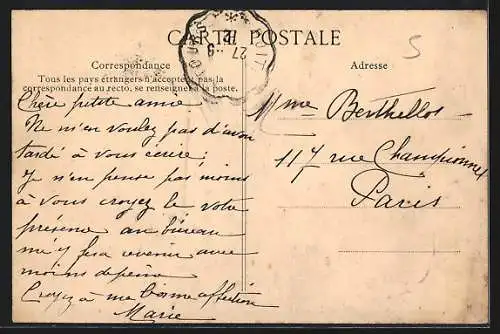 CARTE POSTALE
Correspondance
Tous les pays étrangers n'acceptent pas la
correspondance au recto, se renseigner à la poste.
Chère petite amie
Ne m'en voulez pas d'avoir
tardé à vous écrire;
Je n'en pense pas moins
à vous croyez le votre
présence au bureau
m'y fera revenir avec
moins de peine
Croyez à ma bonne affection
Marie
27
5
Adresse
Mme Berthellot
117 rue Championnet
Paris